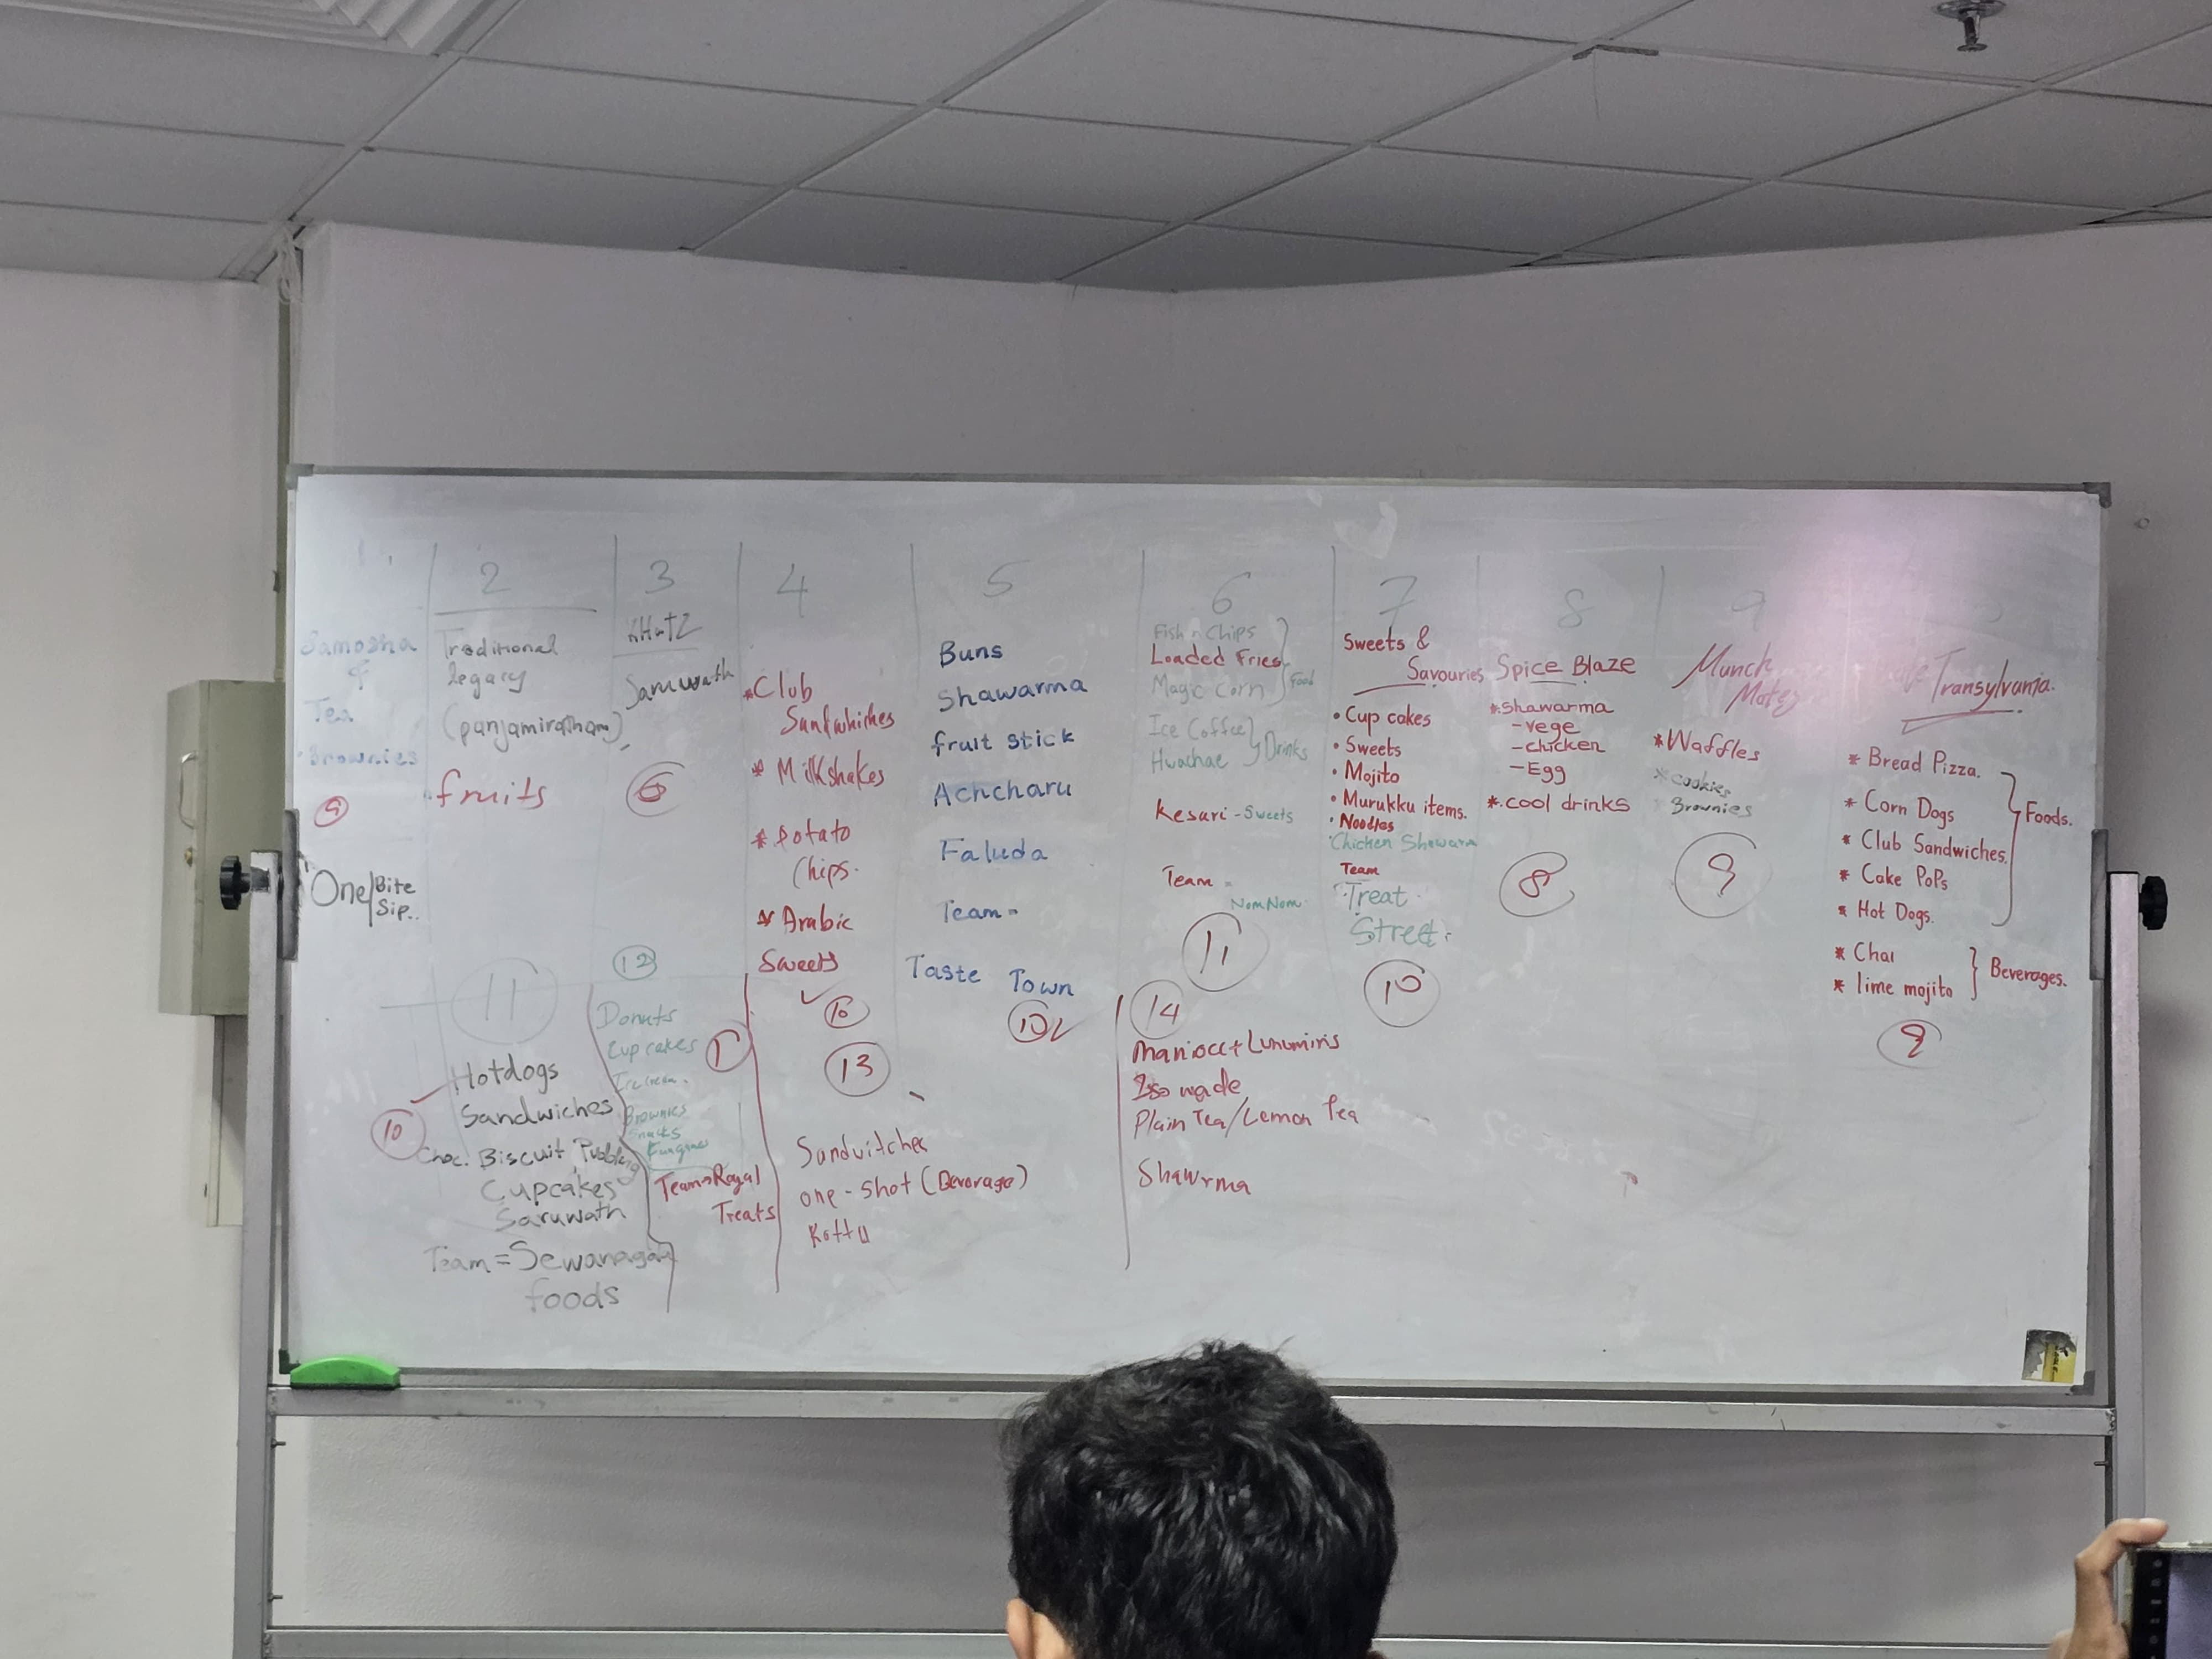 1
Samosha
&
Tea
Brownies
9
One/Bite
Sip..
2
Traditional
Legacy
(panjamiratham)
fruits
3
Saruwath
6
4
*Club
Sandwhiches
* Milkshakes
* Potato
Chips.
* Arabic
Sweets
10
5
Buns
Shawarma
fruit stick
Achcharu
Faluda
Team=
Taste Town
10
6
Fish n Chips
Loaded Fries
Magic Corn
Food
Ice Coffee
Huachae
Drinks
Kesari - Sweets
Team =
NomNom
11
7
Sweets &
Savouries
• Cup cakes
• Sweets
• Mojito
• Murukku items.
• Noodles
• Chicken Shawarm
Team
Treat
Street
10
8
Spice Blaze
* Shawarma
- vege
- chicken
- Egg
* cool drinks
8
9
Munch
Matez
* Waffles
* cookies
Brownies
9
Transylvania.
* Bread Pizza.
* Corn Dogs
* Club Sandwiches.
* Cake Pops
* Hot Dogs.
Foods.
* Chai
* lime mojito
Beverages.
9
11
Hotdogs
Sandwiches
10
Choc. Biscuit Pudding
Cupcakes
Saruwath
Team = Sewanagala
foods
12
Donuts
Cup cakes
Brownies
Team→Royal
Treats
13
Sandvitches
one-shot (Beverage)
Kottu
14
Maniocc + Lunumiris
Iso wade
Plain Tea/Lemon Tea
Shawrma